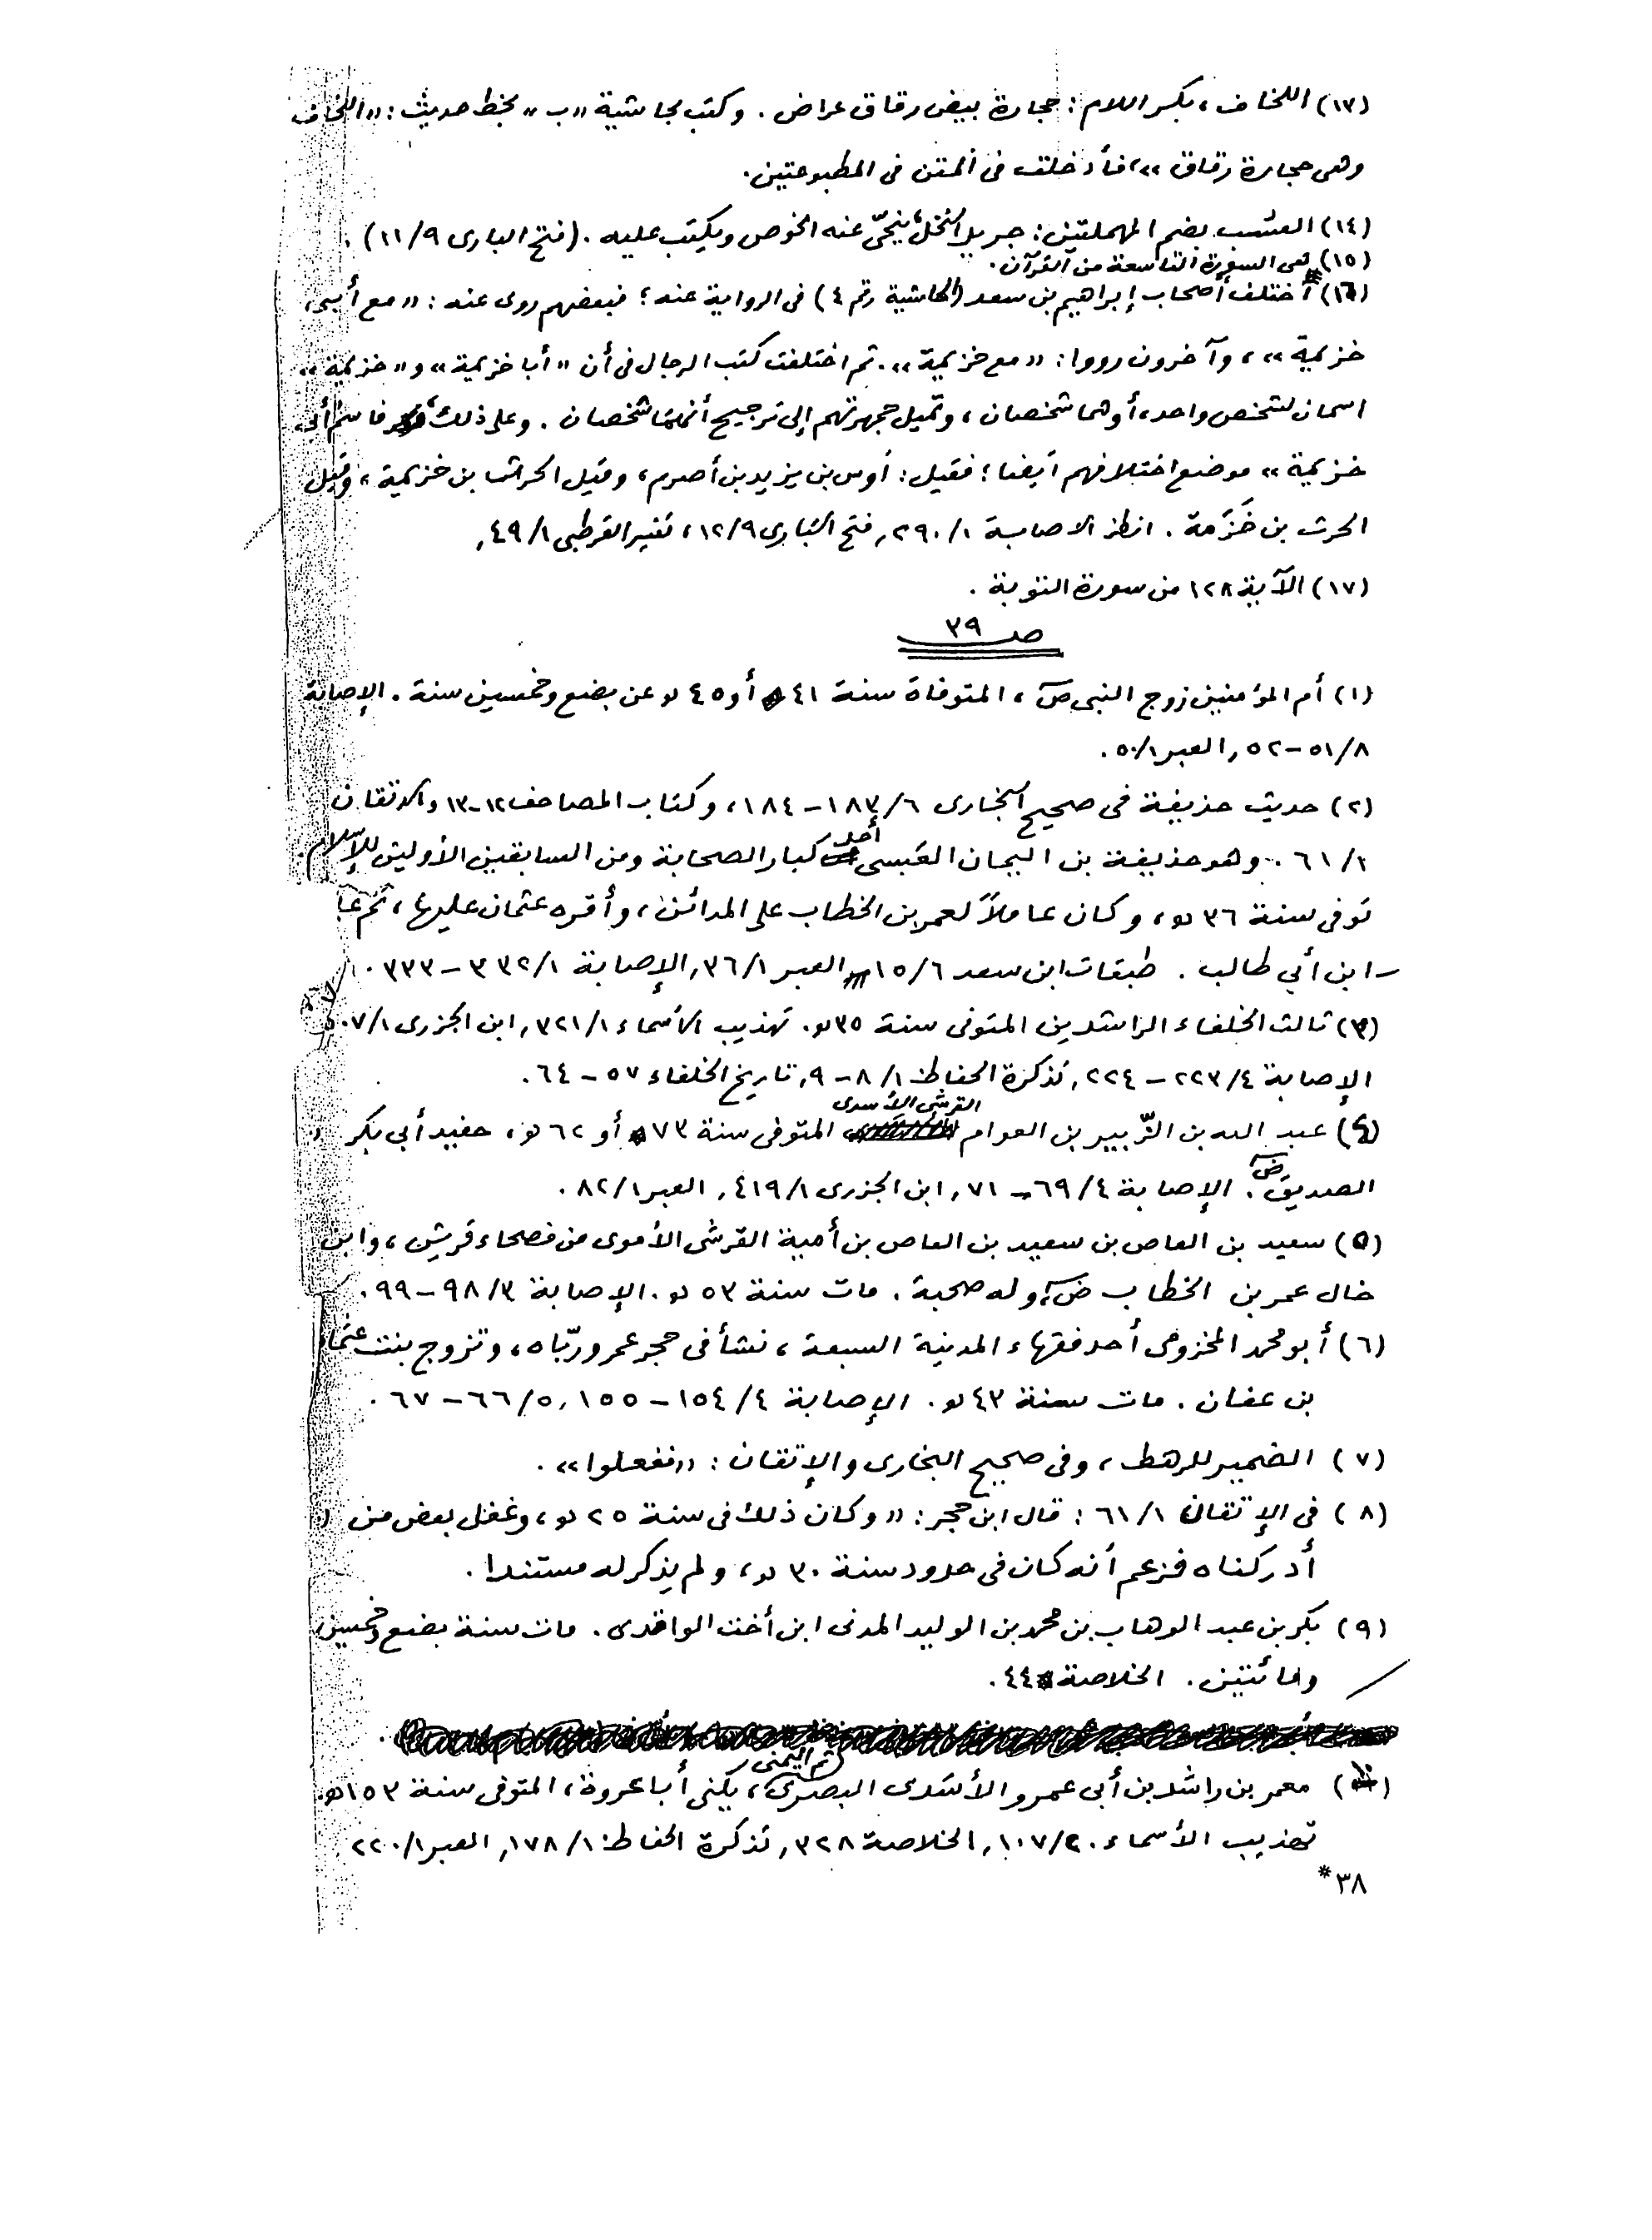 (١٣) اللخاف، بكسر اللام: حجارة بيض رقاق عراض. وكتب بحاشية «ب» بخط حديث: «اللخاف
وهى حجارة رقاق»، فأدخلت فى المتن فى المطبوعتين.
(١٤) العُسُب بضم المهملتين: جريد النخل، ينحّى عنه الخوص ويكتب عليه. (فتح البارى ١١/٩).
(١٥) هى السورة التاسعة من القرآن.
(١٦) اختلف أصحاب إبراهيم بن سعد (الحاشية رقم ٤) فى الرواية عنه؛ فبعضهم روى عنه: «مع أبى
خزيمة»، وآخرون رووا: «مع خزيمة». ثم اختلفت كتب الرجال فى أن «أبا خزيمة» و«خزيمة»
اسمان لشخص واحد، أو هما شخصان، وتميل جمهرتهم إلى ترجيح أنهما شخصان. وعلى ذلك، فاسم «أبى
خزيمة» موضع اختلافهم أيضا؛ فقيل: أوس بن يزيد بن أصرم، وقيل الحرث بن خزيمة، وقيل
الحرث بن خَزَمة. انظر الاصابة ٢٩٠/١, فتح البارى ١٢/٩، تفسير القرطبى ٤٩/١,
(١٧) الآية ١٢٨ من سورة التوبة.
صـ ٣٩
(١) أم المؤمنين زوج النبى ص، المتوفاة سنة ٤١ أو ٤٥ هـ عن بضع وخمسين سنة. الإصابة
٥١/٨-٥٢, العبر ٥٠/١.
(٢) حديث حذيفة فى صحيح البخارى ١٨٣/٦-١٨٤، وكتاب المصاحف ١٢-١٣ والاتقان
٦١/١. وهو حذيفة بن اليمان العبسى أحد كبار الصحابة ومن السابقين الأولين للإسلام.
توفى سنة ٣٦ هـ، وكان عاملاً لعمر بن الخطاب على المدائن، وأقره عثمان عليها، ثم
ابن أبي طالب. طبقات ابن سعد ١٥/٦, العبر ٣٦/١, الإصابة ٣٣٢/١-٣٣٣.
(٣) ثالث الخلفاء الراشدين المتوفى سنة ٣٥ هـ. تهذيب الأسماء ٣٢١/١, ابن الجزرى ٥٠٧/١
الإصابة ٢٢٣/٤-٢٢٤, تذكرة الحفاظ ٨/١-٩, تاريخ الخلفاء ٥٧-٦٤.
(٤) عبد الله بن الزّبير بن العوام القرشى الأسدى المتوفى سنة ٧٣ أو ٦٢ هـ، حفيد أبي بكر
الصديق ض. الإصابة ٦٩/٤-٧١, ابن الجزرى ٤١٩/١, العبر ٨٢/١.
(٥) سعيد بن العاص بن سعيد بن العاص بن أمية القرشى الأموى من فصحاء قريش، وابن
خال عمر بن الخطاب ض، وله صحبة. مات سنة ٥٣ هـ. الإصابة ٩٨/٣-٩٩.
(٦) أبو محمد المخزومى أحد فقهاء المدينة السبعة، نشأ فى حجر عمر وربّاه، وتزوج بنت عثمان
بن عفان. مات سنة ٤٣ هـ. الإصابة ١٥٤/٤-١٥٥, ٦٦/٥-٦٧.
(٧) الضمير للرهط، وفى صحيح البخارى والإتقان: «ففعلوا».
(٨) فى الإتقان ٦١/١: قال ابن حجر: «وكان ذلك فى سنة ٢٥ هـ، وغفل بعض من
أدركناه فزعم أنه كان فى حدود سنة ٣٠ هـ، ولم يذكر له مستندا.
(٩) بكر بن عبد الوهاب بن محمد بن الوليد المدنى ابن أخت الواقدى. مات سنة بضع وخمسين
ومائتين. الخلاصة ٤٤.
(١٠) معمر بن راشد بن أبى عمرو الأسدى البصرى ثم اليمنى، يكنى أبا عروة، المتوفى سنة ١٥٣ هـ.
تهذيب الأسماء ١٠٧/٢, الخلاصة ٣٢٨, تذكرة الحفاظ ١٧٨/١, العبر ٢٢٠/١
٣٨*